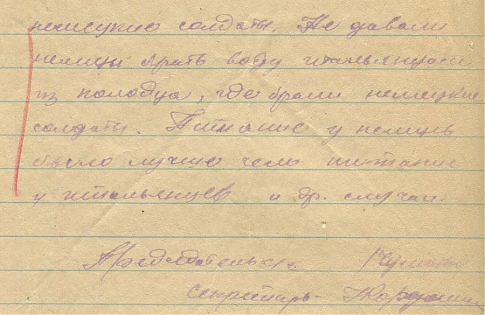 немецкие солдаты. Не давали
немцы брать воду итальянцам
из колодца, где брали немецкие
солдаты. Питание у немцев
было лучше чем питание
у итальянцев и др. случаи.
Председатель
Секретарь-